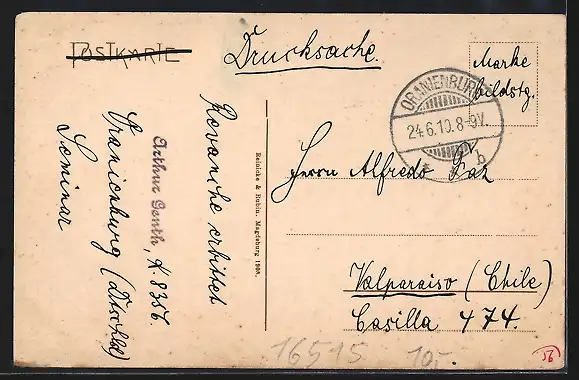 POSTKARTE
Drucksache.
Marke
bildstg.
ORANIENBURG
24.6.10.8-9V.
* b
Revanche erbittet
Arthur Genth, K 8356.
Oranienburg (Dtschld)
Seminar
Reinicke & Rubin, Magdeburg 1908.
Herrn Alfredo Paz
Valparaiso (Chile)
Casilla 474.
16515
10,-
56